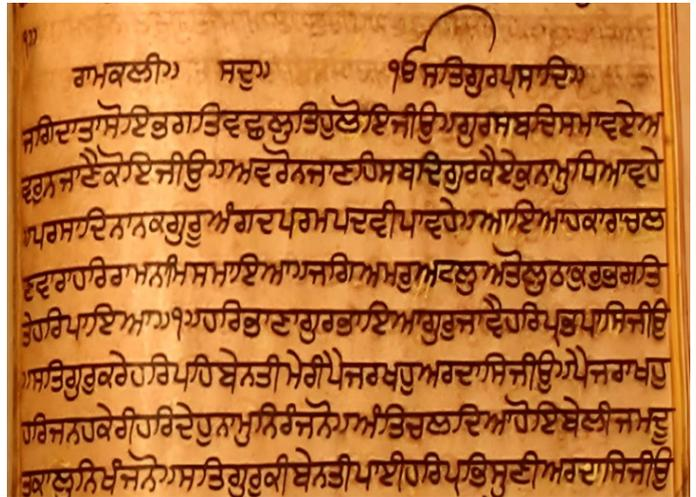 ਰਾਮਕਲੀ॥ ਸਦੁ॥ ੴ ਸਤਿਗੁਰਪ੍ਰਸਾਦਿ॥
ਜਗਿਦਾਤਾਸੋਇਭਗਤਿਵਛਲੁਤਿਹੁਲੋਇਜੀਉ॥ਗੁਰਸਬਦਿਸਮਾਵਏਅ
ਵਰੁਨਜਾਣੈਕੋਇਜੀਉ॥ਅਵਰੋਨਜਾਣਹਿਸਬਦਿਗੁਰਕੈਏਕੁਨਾਮੁਧਿਆਵਹੇ
॥ਪਰਸਾਦਿਨਾਨਕਗੁਰੂਅੰਗਦਪਰਮਪਦਵੀਪਾਵਹੇ॥ਆਇਆਹਕਾਰਾਚਲ
ਣਵਾਰਾਹਰਿਰਾਮਨਾਮਿਸਮਾਇਆ॥ਜਗਿਅਮਰੁਅਟਲੁਅਤੋਲੁਠਾਕੁਰੁਭਗਤਿ
ਤੇਹਰਿਪਾਇਆ॥੧॥ਹਰਿਭਾਣਾਗੁਰਭਾਇਆਗੁਰੁਜਾਵੈਹਰਿਪ੍ਰਭਪਾਸਿਜੀਉ
॥ਸਤਿਗੁਰੁਕਰੇਹਰਿਪਹਿਬੇਨਤੀਮੇਰੀਪੈਜਰਖਹੁਅਰਦਾਸਿਜੀਉ॥ਪੈਜਰਾਖਹੁ
ਹਰਿਜਨਹਕੇਰੀਹਰਿਦੇਹੁਨਾਮੁਨਿਰੰਜਨੋ॥ਅੰਤਿਚਲਦਿਆਹੋਇਬੇਲੀਜਮਦੂ
ਤਕਾਲੁਨਿਖੰਜਨੋ॥ਸਤਿਗੁਰੂਕੀਬੇਨਤੀਪਾਈਹਰਿਪ੍ਰਭਿਸੁਣੀਅਰਦਾਸਿਜੀਉ